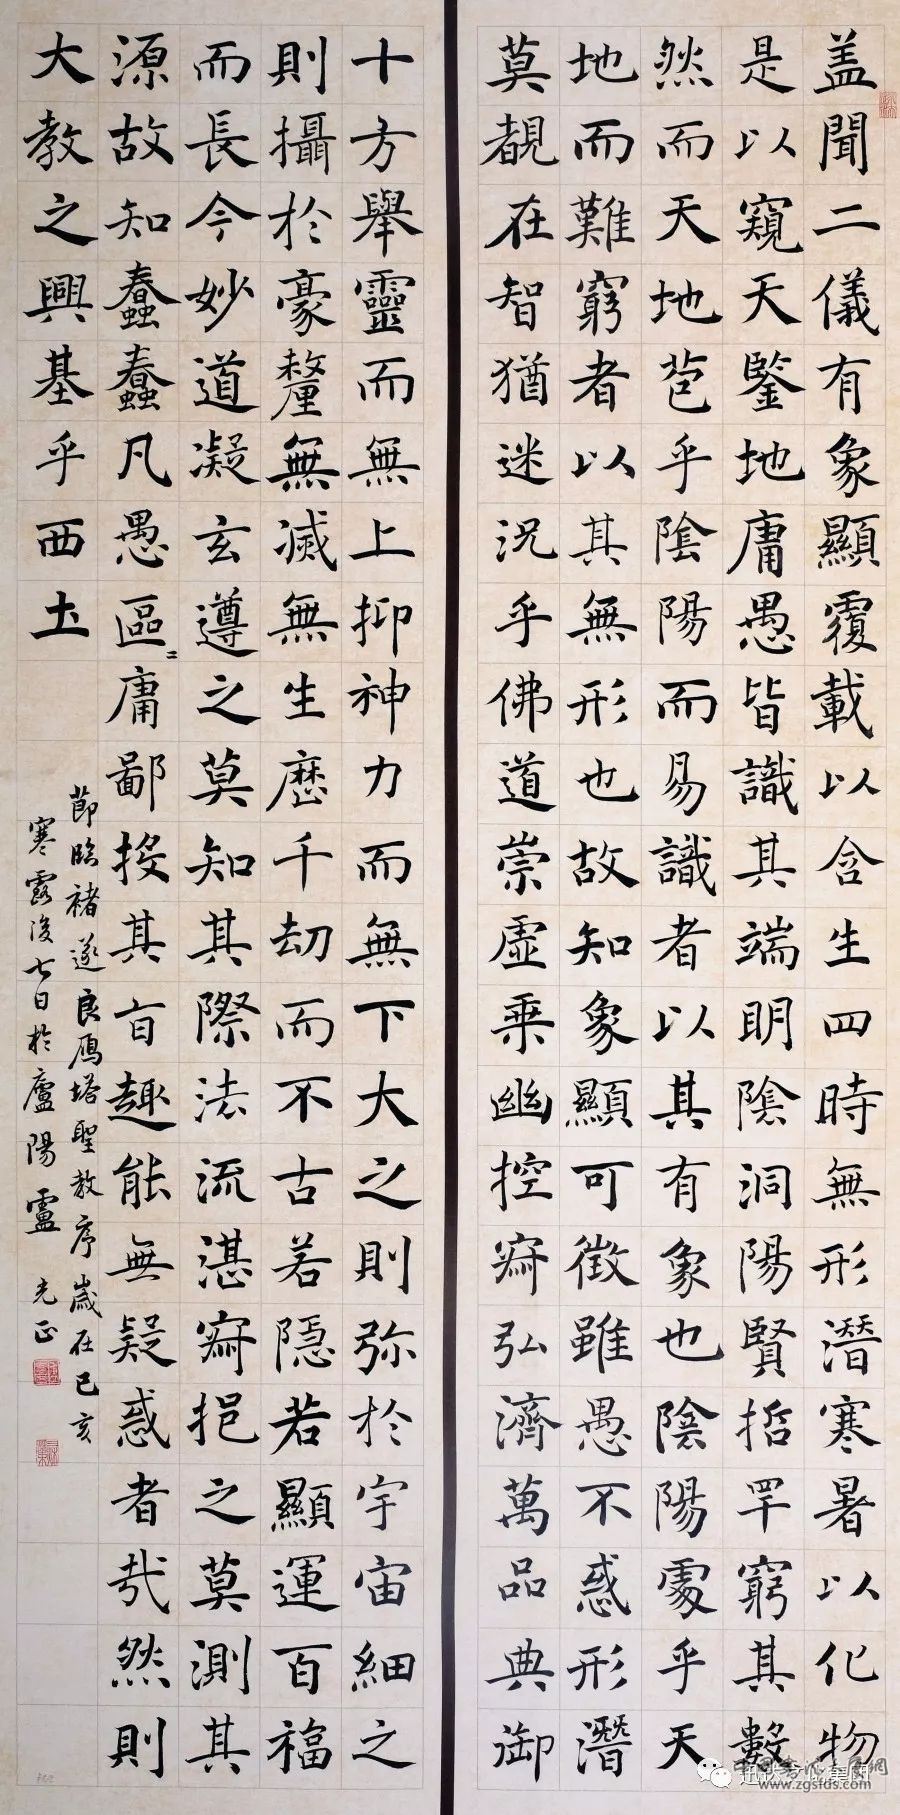 盖聞二儀有象顯覆載以含生四時無形潛寒暑以化物
是以窺天鑒地庸愚皆識其端明陰洞陽賢哲罕窮其數
然而天地苞乎陰陽而易識者以其有象也陰陽處乎天
地而難窮者以其無形也故知象顯可徵雖愚不惑形潛
莫覩在智猶迷況乎佛道崇虛乘幽控寂弘濟萬品典御
十方舉靈而無上抑神力而無下大之則弥於宇宙細之
則攝於豪釐無滅無生歷千劫而不古若隱若顯運百福
而長今妙道凝玄遵之莫知其際法流湛寂挹之莫測其
源故知蠢蠢凡愚區〻庸鄙投其旨趣能無疑惑者哉然則
大教之興基乎西土
節臨褚遂良雁塔聖教序歲在己亥
寒露後七日於廬陽盧光正
www.zgsfds.com